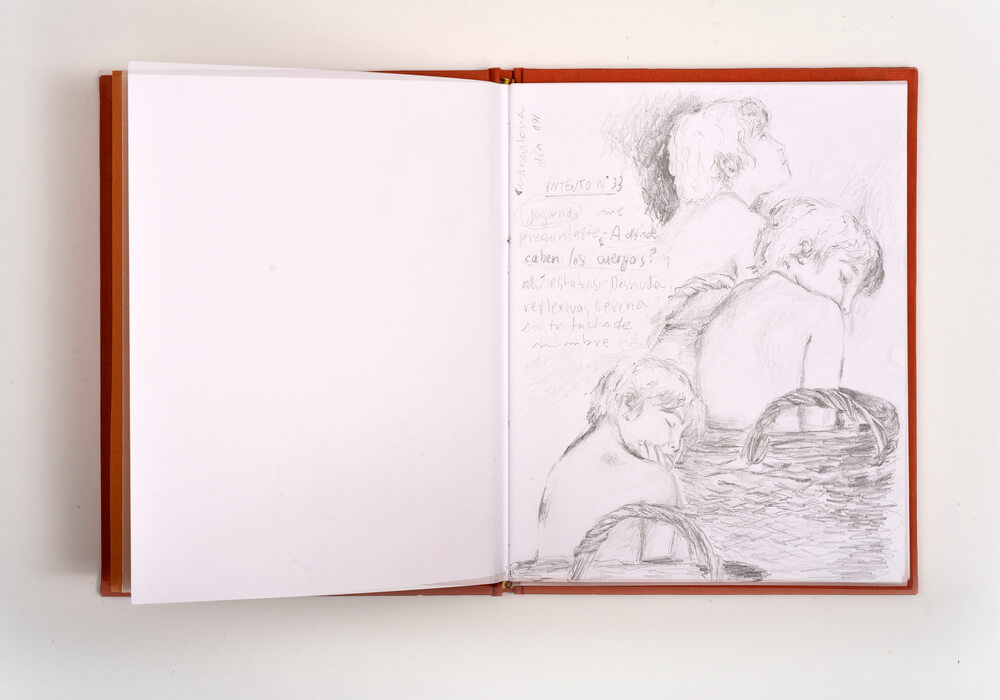 cuarentena
día 091
INTENTO N° 33
Jugando me
preguntaste ¿A dónde
caben los cuerpos? y
ahí estabas. Desnuda,
reflexiva, serena
en tu tacho de
mimbre